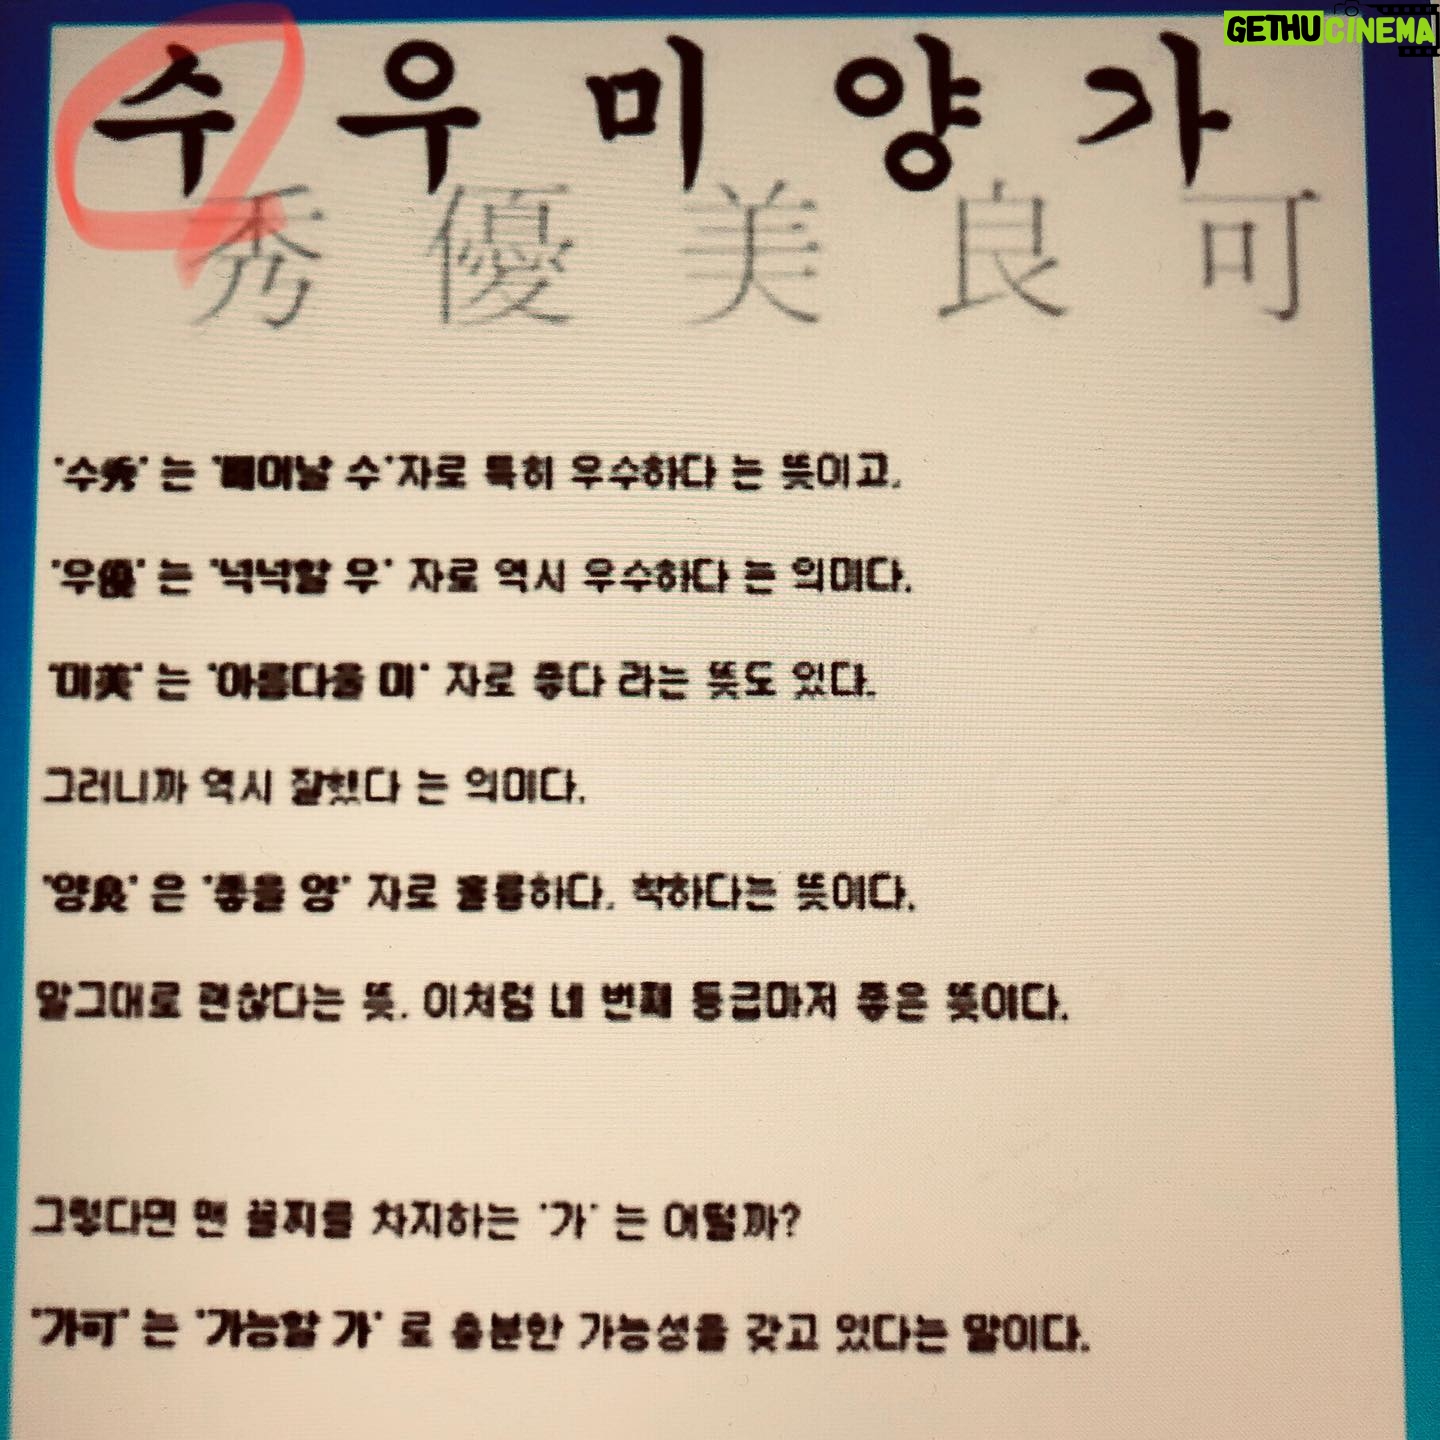 GETHUCINEMA
수 우 미 양 가
秀 優 美 良 可
'수秀' 는 '빼어날 수'자로 특히 우수하다 는 뜻이고,
'우優' 는 '넉넉할 우' 자로 역시 우수하다 는 의미다.
'미美' 는 '아름다울 미' 자로 좋다 라는 뜻도 있다.
그러니까 역시 잘했다 는 의미다.
'양良' 은 '좋을 양' 자로 훌륭하다, 착하다는 뜻이다.
말그대로 괜찮다는 뜻. 이처럼 네 번째 등급마저 좋은 뜻이다.
그렇다면 맨 끝찌를 차지하는 '가' 는 어떨까?
'가可' 는 '가능할 가' 로 충분한 가능성을 갖고 있다는 말이다.